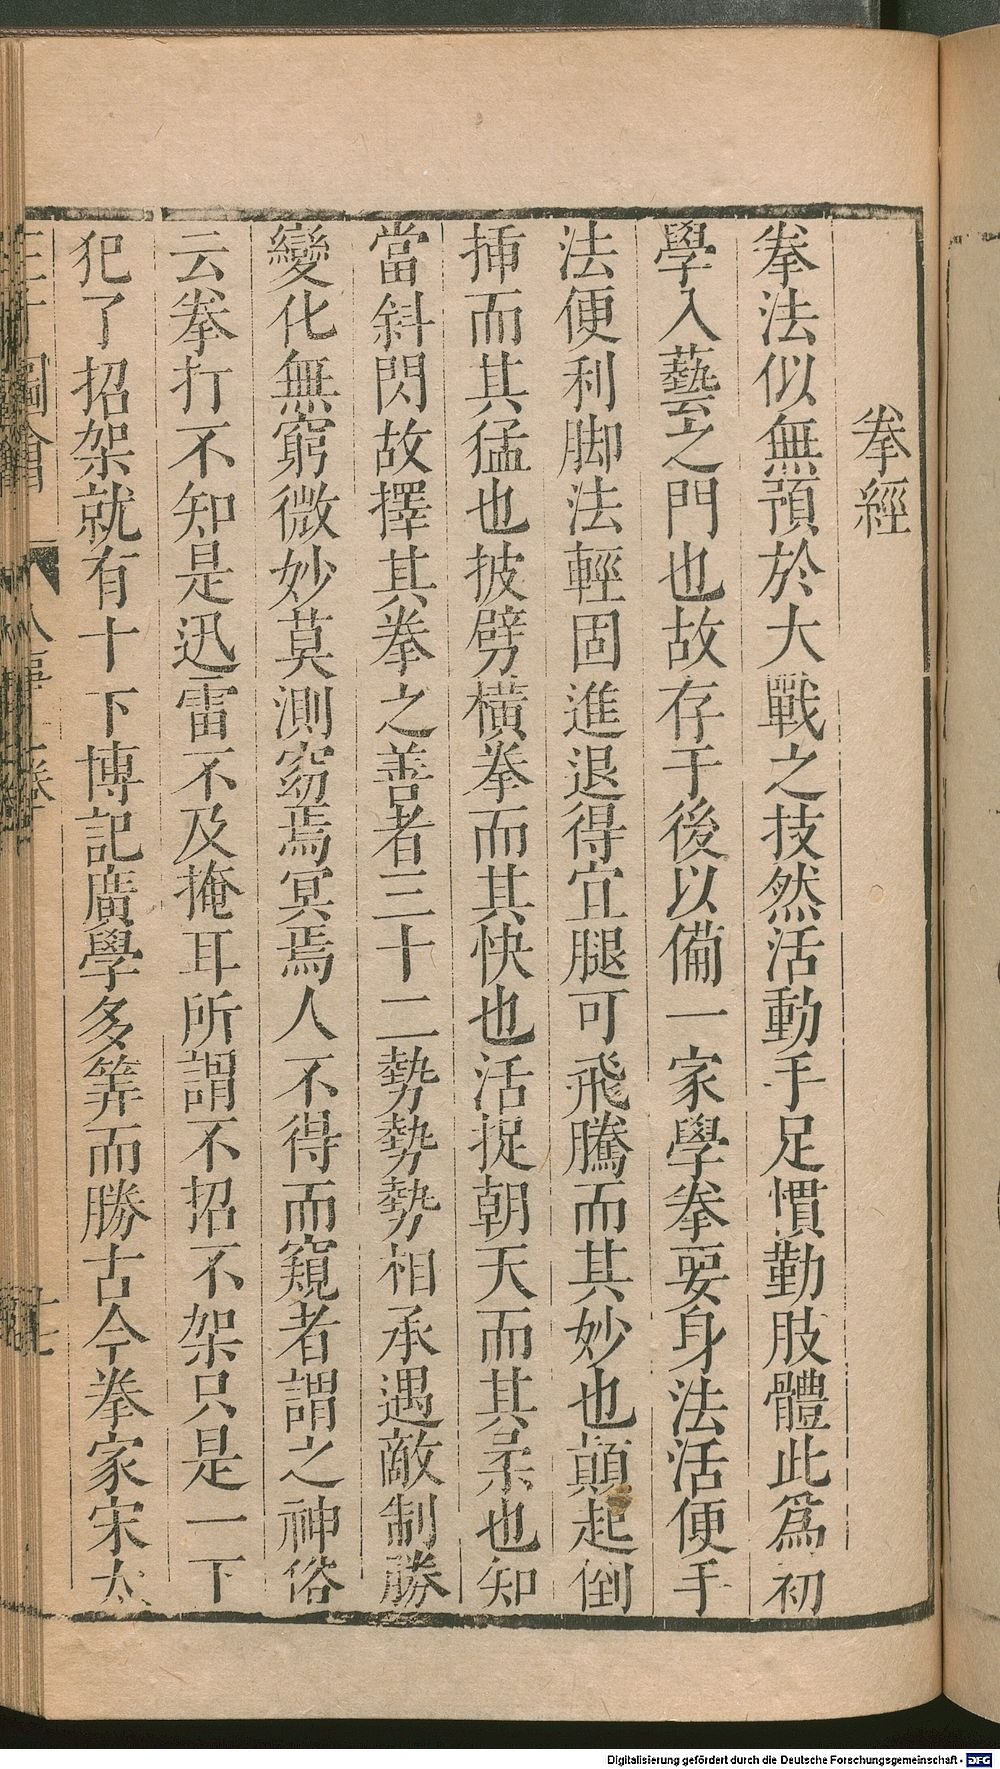 拳經
拳法似無預於大戰之技然活動手足慣勤肢體此爲初
學入藝之門也故存于後以備一家學拳要身法活便手
法便利脚法輕固進退得宜腿可飛騰而其妙也顛起倒
揷而其猛也披劈橫拳而其快也活捉朝天而其柔也知
當斜閃故擇其拳之善者三十二勢勢勢相承遇敵制勝
變化無窮微妙莫測窈焉冥焉人不得而窺者謂之神俗
云拳打不知是迅雷不及掩耳所謂不招不架只是一下
犯了招架就有十下博記廣學多筭而勝古今拳家宋太
圖會
Digitalisierung gefördert durch die Deutsche Forschungsgemeinschaft - DFG